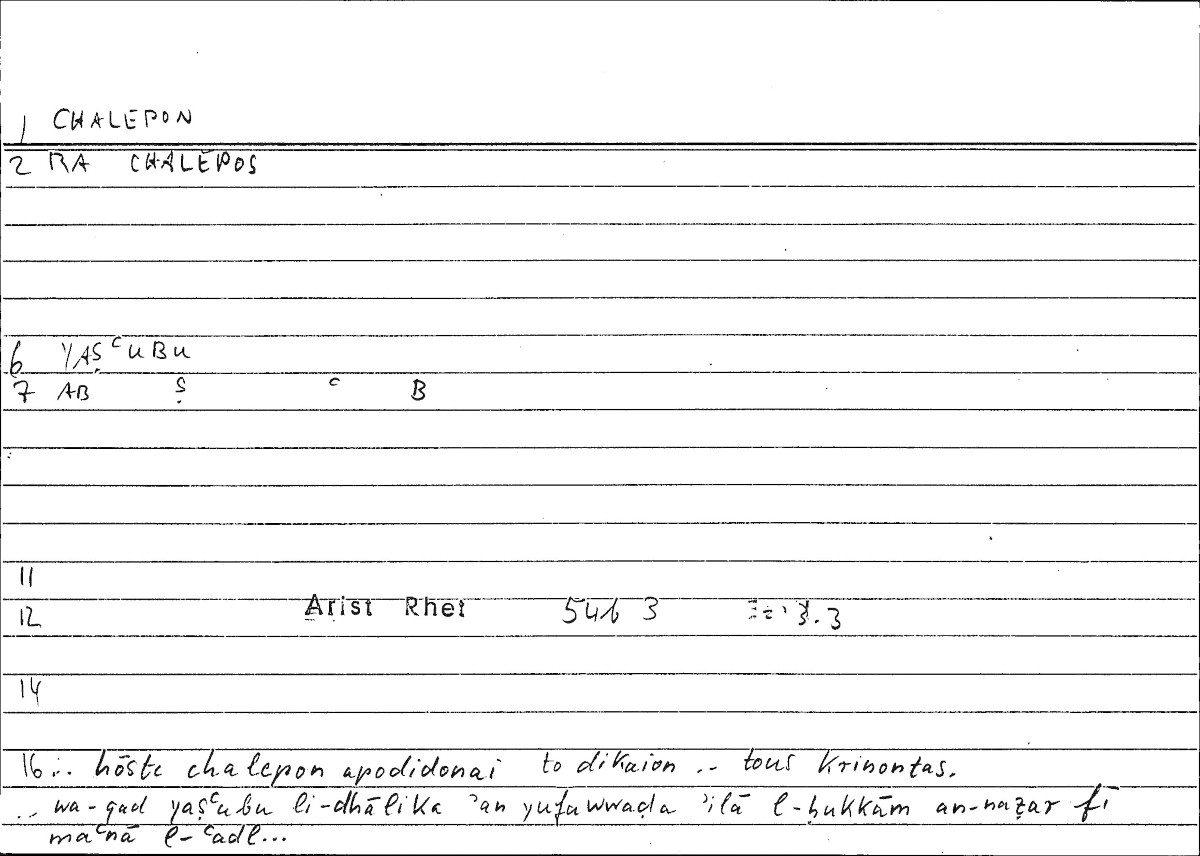 1 CHALEPON
2 RA CHALEPOS
6 YAṢʿUBU
7 AB Ṣ ʿ B
11
12 Arist Rhet 54b 3 3.3
14
16 .. hōste chalepon apodidonai to dikaion .. tous krinontas.
.. wa-qad yaṣʿubu li-dhālika ʾan yufawwaḍa ʾilā l-ḥukkām an-naẓar fī
maʿnā l-ʿadl...